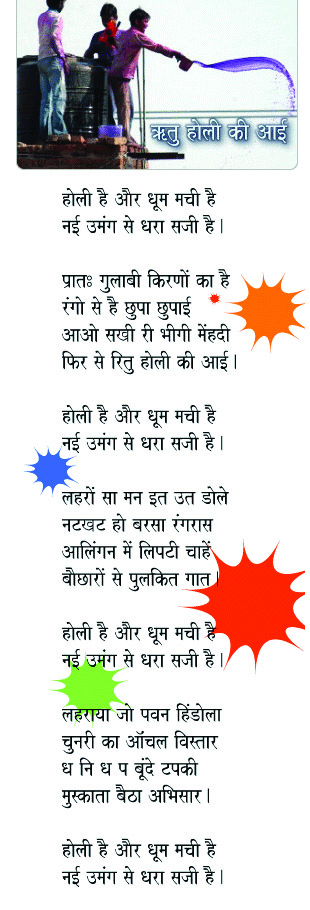 ऋतु होली की आई
होली है और धूम मची है
नई उमंग से धरा सजी है।
प्रातः गुलाबी किरणों का है
रंगो से है छुपा छुपाई
आओ सखी री भीगी मेंहदी
फिर से रितु होली की आई।
होली है और धूम मची है
नई उमंग से धरा सजी है।
लहरों सा मन इत उत डोले
नटखट हो बरसा रंगरास
आलिंगन में लिपटी चाहें
बौछारों से पुलकित गात।
होली है और धूम मची है
नई उमंग से धरा सजी है।
लहराया जो पवन हिंडोला
चुनरी का ऑंचल विस्तार
ध नि ध प बूंदे टपकी
मुस्काता बैठा अभिसार।
होली है और धूम मची है
नई उमंग से धरा सजी है।